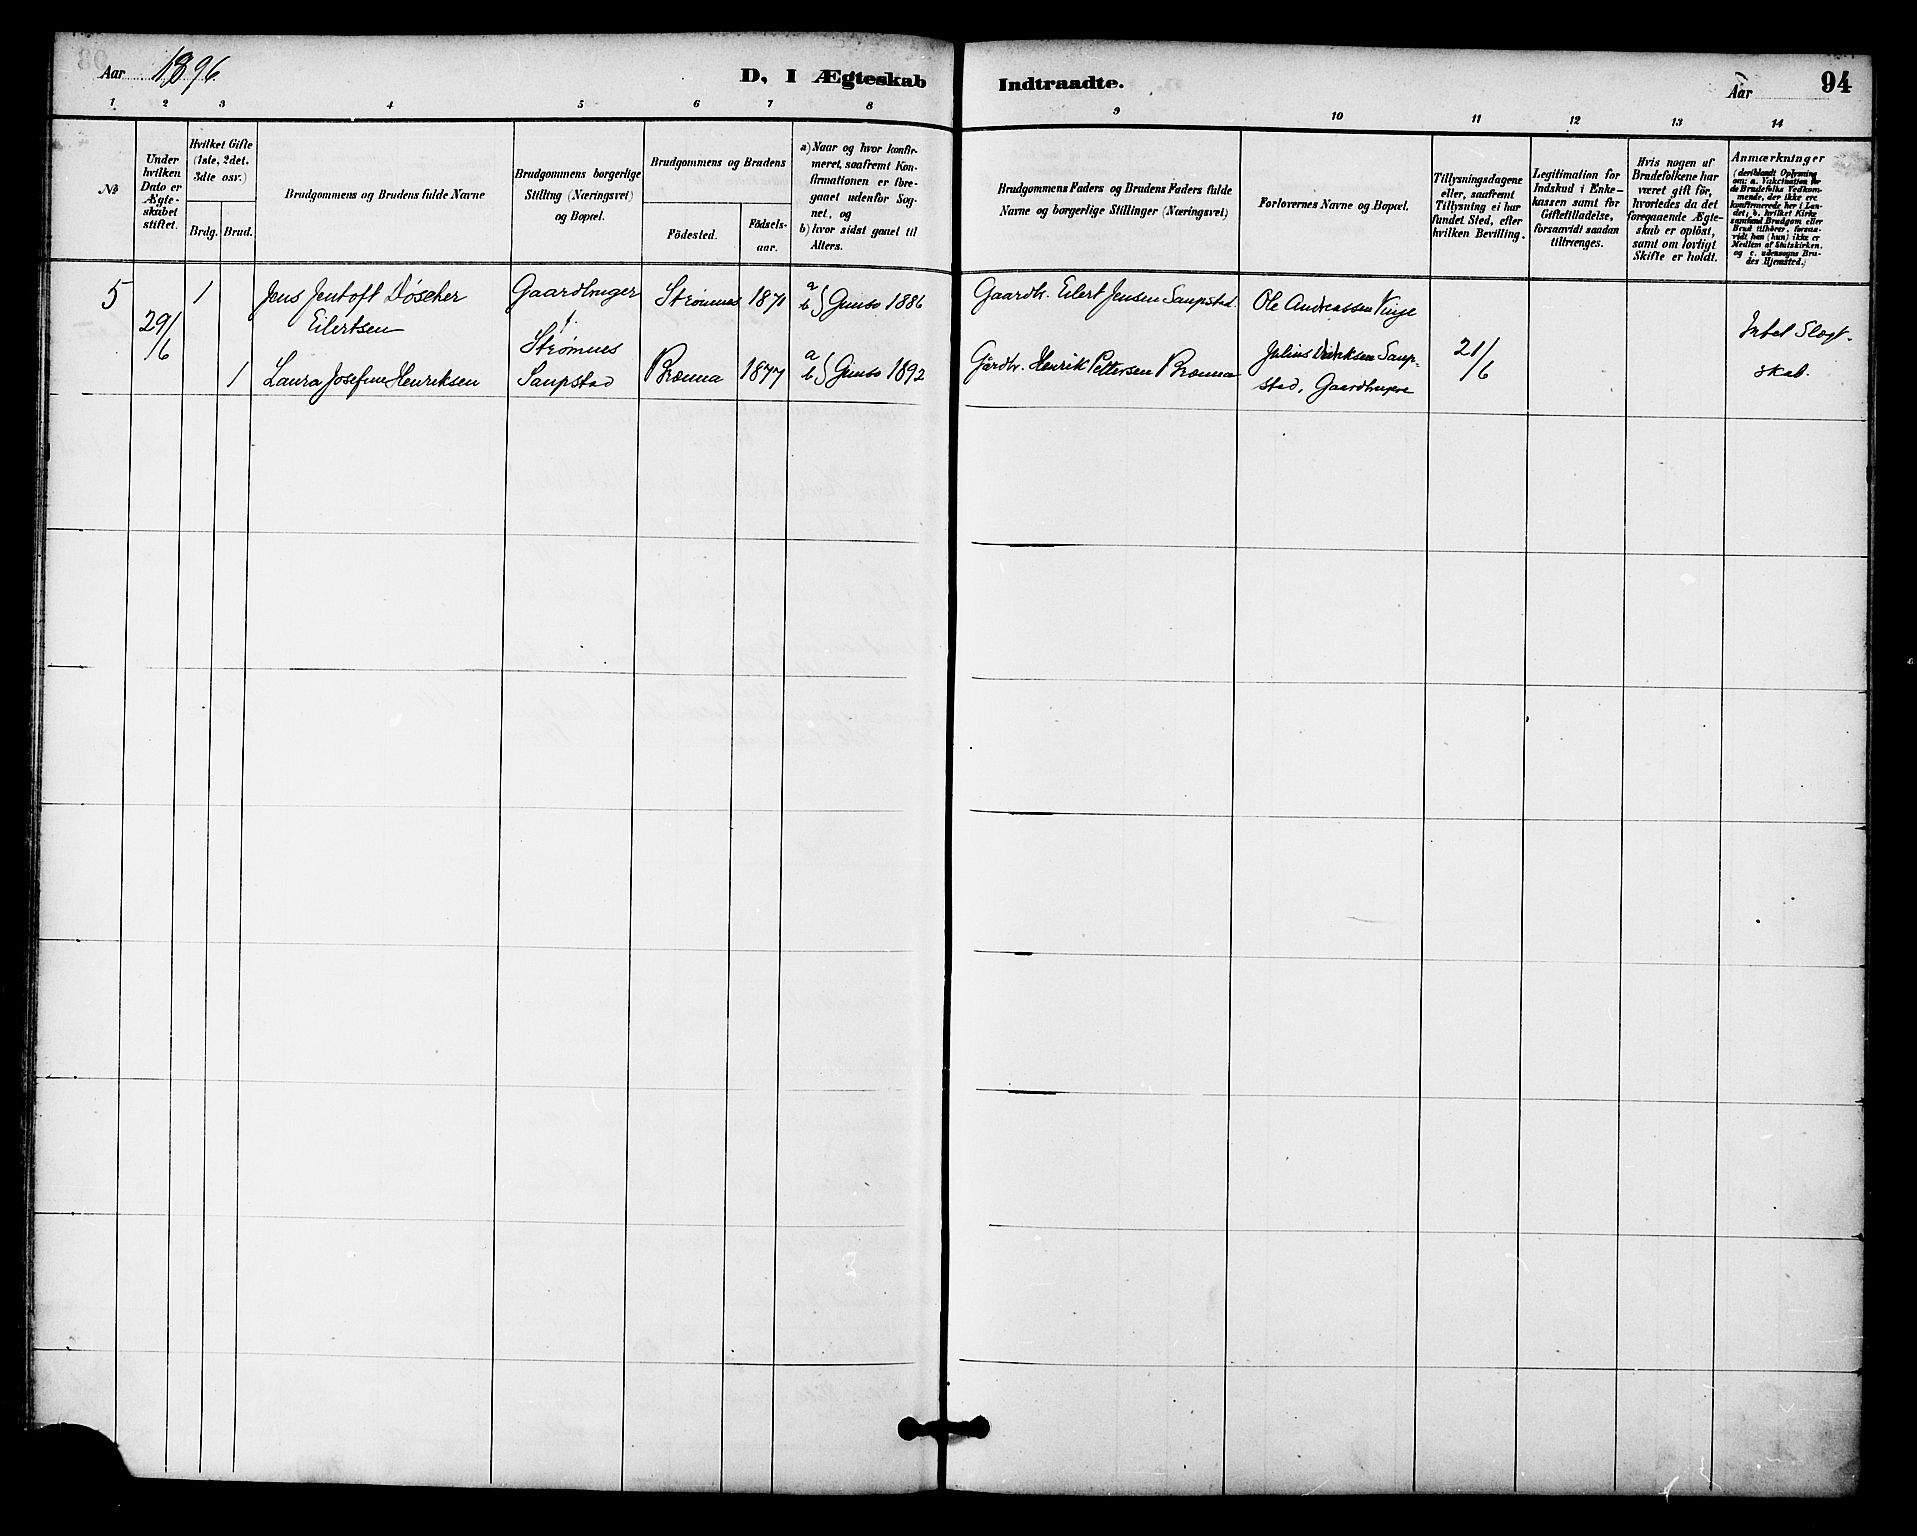 Aar 1896
D, I Ægteskab
Indtraadte.
Aar
94
1 2 3 4 5 6 7 8 9 10 11 12 13 14
No
Under
hvilken
Dato er
Ægte-
skabet
stiftet.
Hvilket Gifte
(1ste, 2det,
3die osv.)
Brdg. Brud.
Brudgommens og Brudens fulde Navne
Brudgommens borgerlige
Stilling (Næringsvei)
og Bopæl.
Brudgommens og Brudens
Födested.
Födsels-
aar.
a) Naar og hvor konfir-
meret, saafremt Kon-
firmationen er fore-
gaaet udenfor Sog-
net, og
b) hvor sidst gaaet til
Alters.
Brudgommens Faders og Brudens Faders fulde
Navne og borgerlige Stillinger (Næringsvei)
Forlovernes Navne og Bopæl.
Tillysningsdagene
eller, saafremt
Tillysning ei har
fundet Sted, efter
hvilken Bevilling.
Legitimation for
Indskud i Enke-
kassen samt for
Giftetilladelse,
forsaavidt saadan
tiltrænges.
Hvis nogen af
Brudefolkene har
været gift för,
hvorledes da det
foregaaende Ægte-
skab er oplöst,
samt om lovligt
Skifte er holdt.
Anmærkninger
(deriblandt Oplysning
om: a. Vakcination for
de Brudefolks Vedkom-
mende, der ikke ere
konfirmerede her i Lan-
det; b. hvilket Kirke
samfund Brudgom eller
Brud tilhörer, forsaa-
vidt han (hun) ikke er
Medlem af Statskirken,
og c. udensogns Bru-
des Hjemsted.)
5 29/6 1 Jens Jentoft Döscher
Eilertsen
Gaardbruger
Strømnes
Strømnes 1871 a b Gimsø 1886
Gaardbr. Eilert Jensen Saupstad.
Ole Andreassen Vinje
1 Laura Josefine Henriksen
Saupstad
Brenna 1877 a b Gimsø 1892
Gårdbr. Henrik Pettersen Brenna
Julius Didriksen Saup-
stad, Gaardbrugere
21/6
Intet Slægt-
skab.